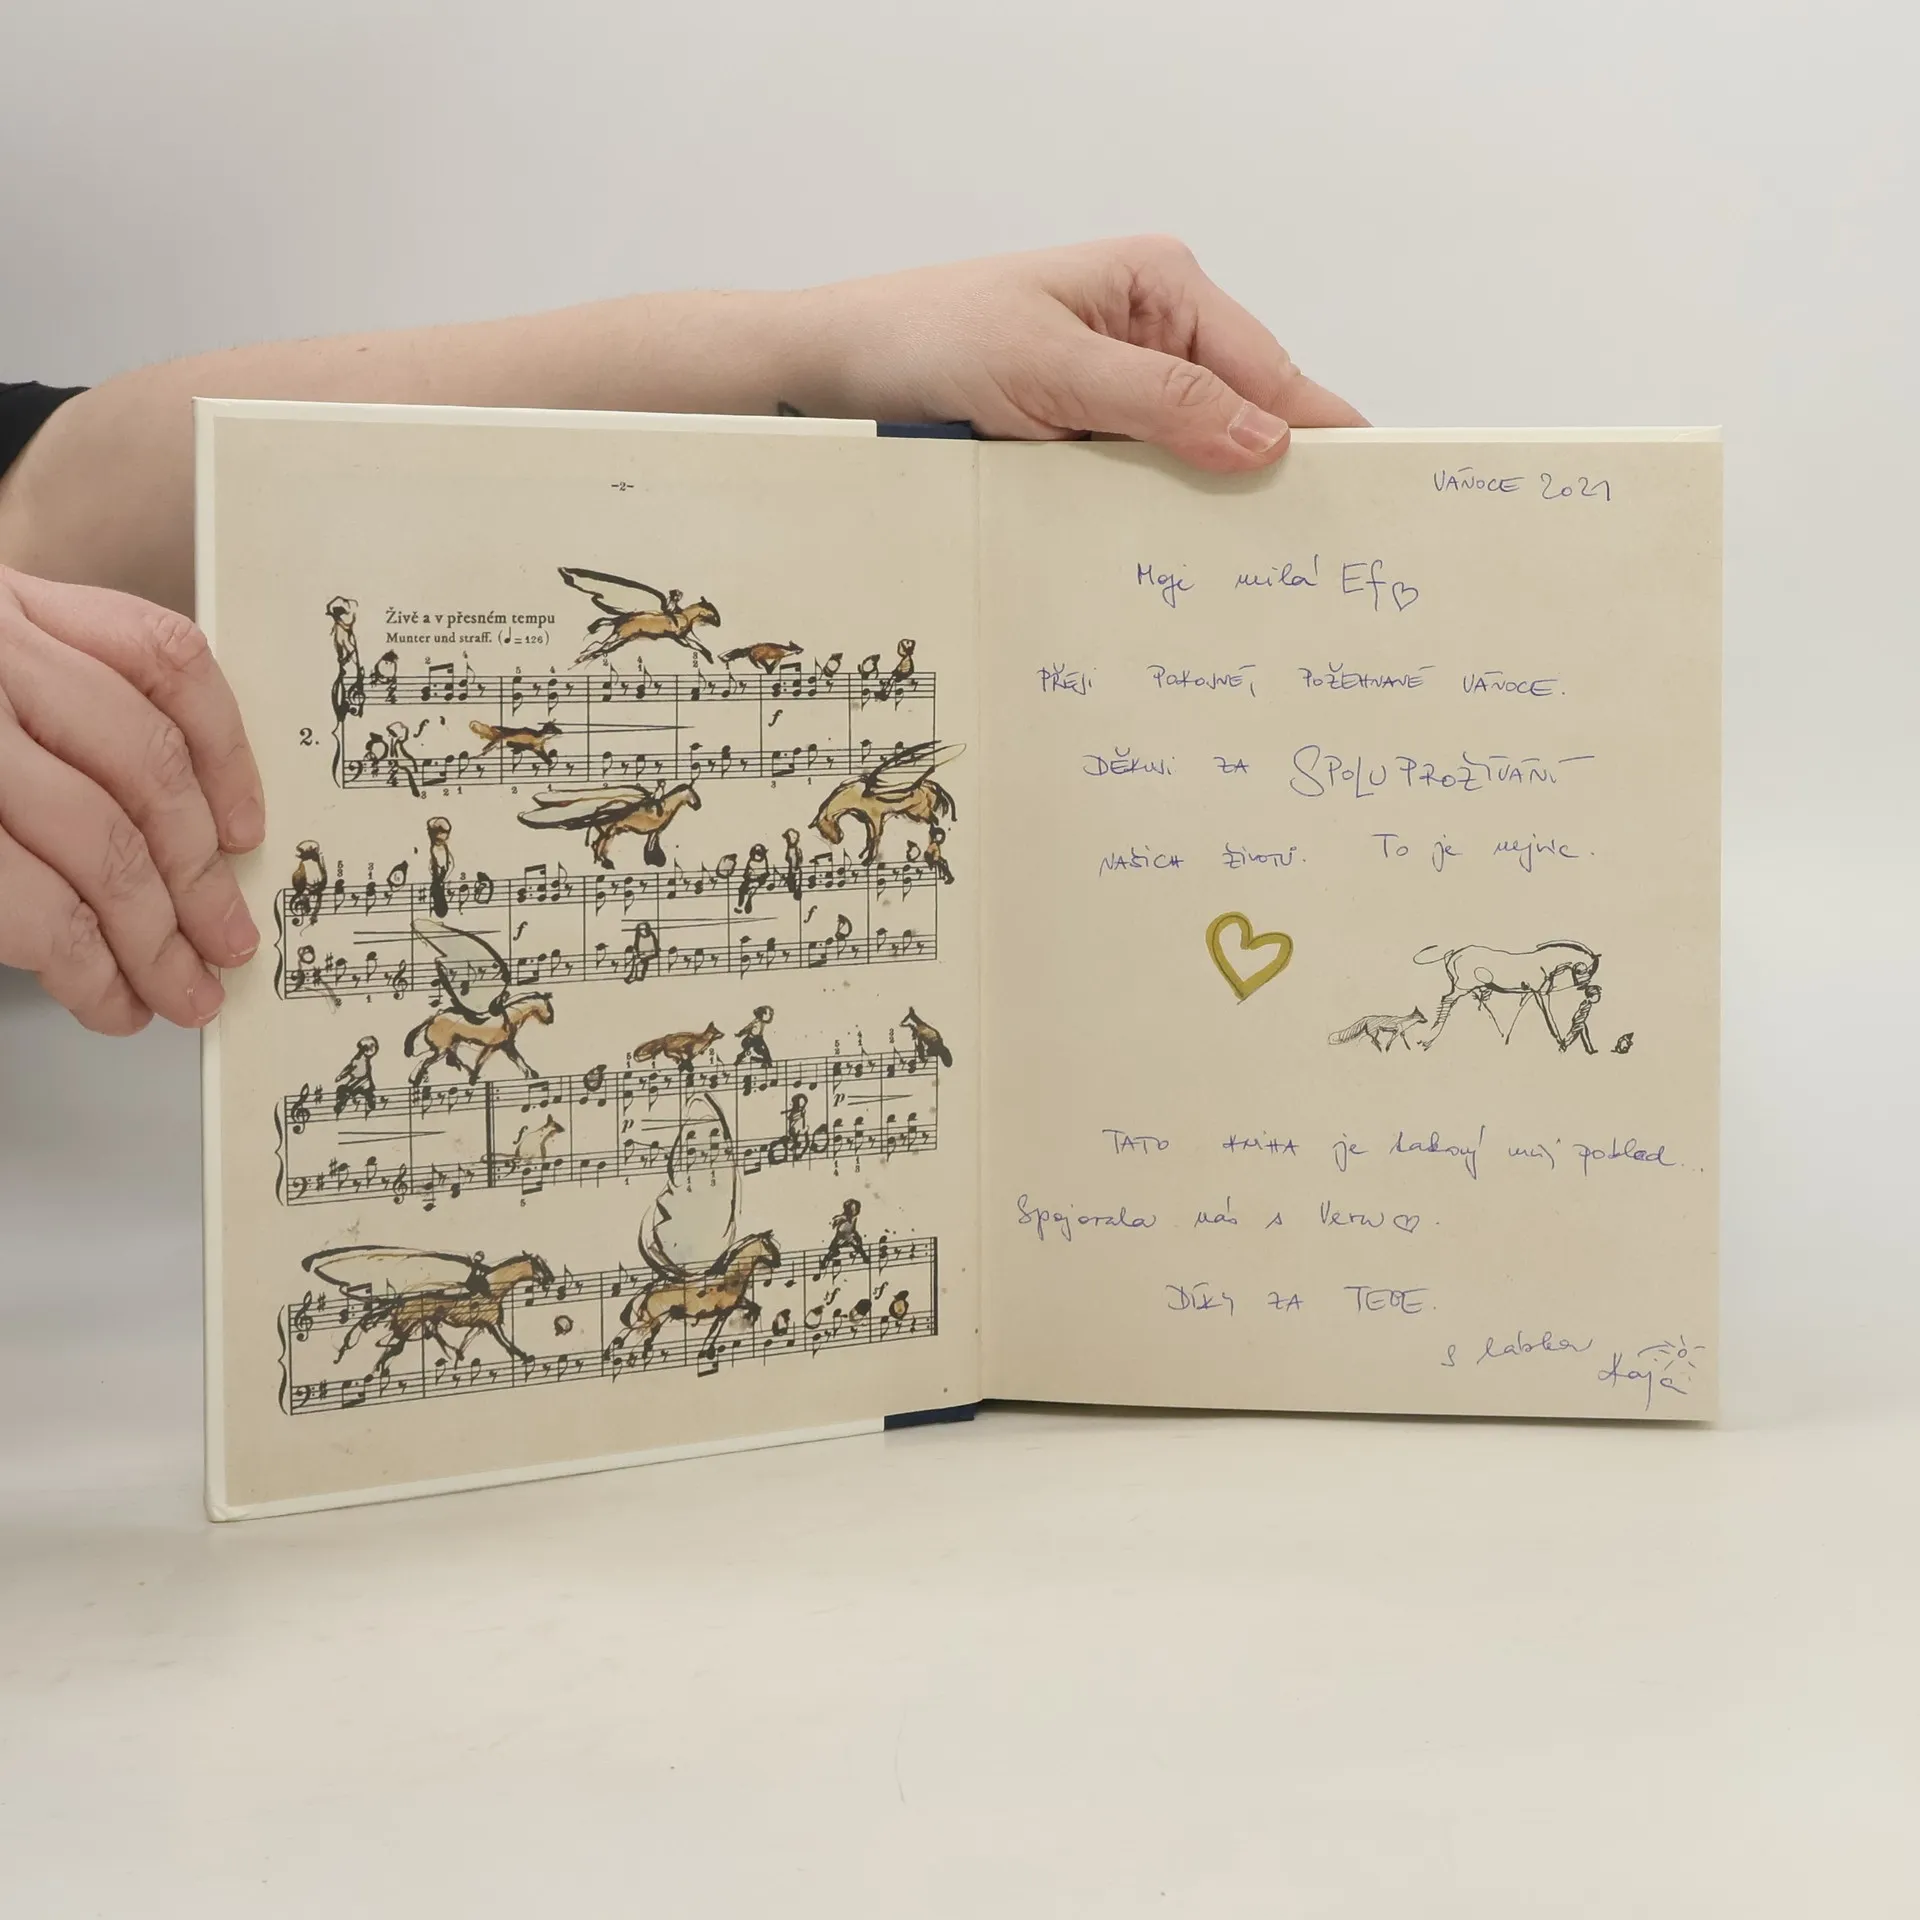 -2-
Živě a v přesném tempu
Munter und straff. (♩=126)
2.
VÁNOCE 2021
Moje milá Ef♡
PŘEJI POKOJNÉ, POŽEHNANÉ VÁNOCE.
DĚKUJI ZA SPOLUPROŽÍVÁNÍ
NAŠICH ŽIVOTŮ. To je nejvíc.
TATO KNIHA je takový můj poklad...
Spojovala nás s Veru♡.
DÍKY ZA TEBE.
S láskou
Kája